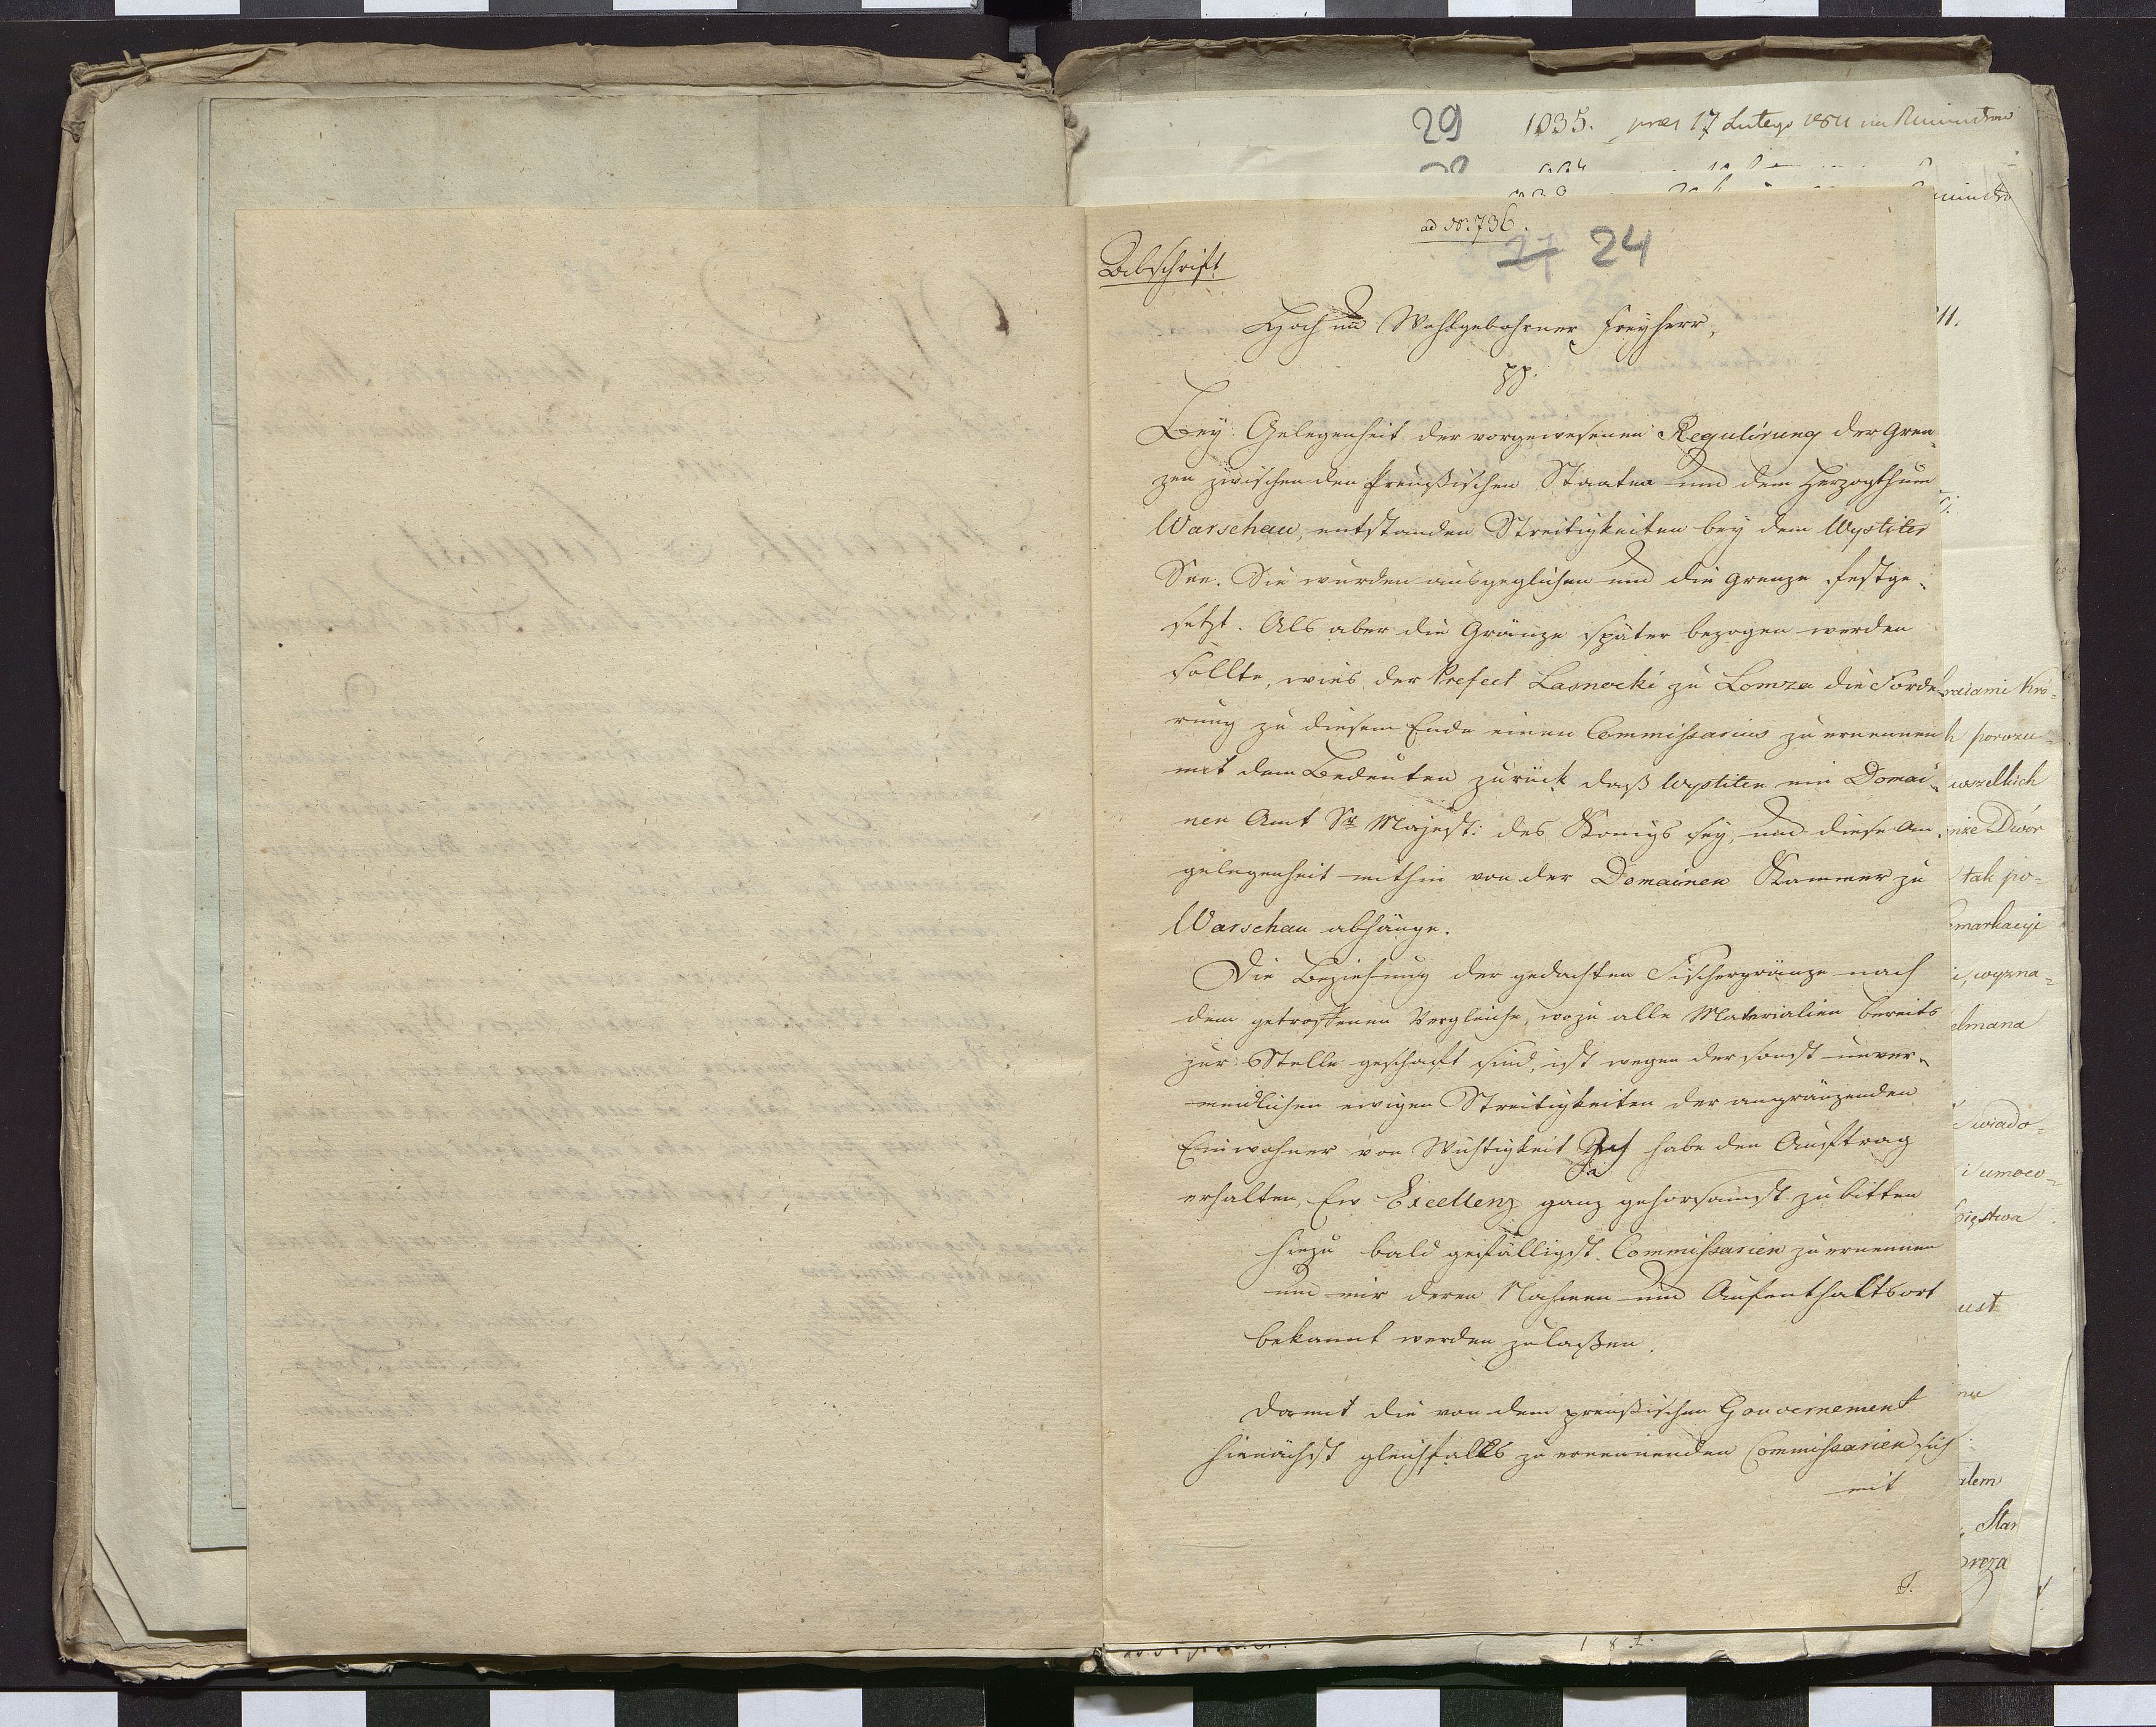 29 1035. præs 17 Lutego 1811
ad No: 736.
27 24
Abschrift
Hoch und Wohlgebohrner Freyherr,
pp.
Bey Gelegenheit der vorgewesenen Regulirung der Gren-
zen zwischen den Preußischen Staaten und dem Herzogthum
Warschau, entstanden Streitigkeiten bey dem Wystiter
See. Sie wurden ausgeglichen und die Grenze festge-
setzt. Als aber die Gränze später bezogen werden
sollte, wies der Prefect Lasnocki zu Lomza die Forde
rung zu diesem Ende einen Commissarius zu ernennen
mit dem Bedeuten zurück daß Wystiten ein Domai-
nen Amt Sr. Majest: des Königs sey, und diese An-
gelegenheit mithin von der Domainen Kammer zu
Warschau abhänge.
Die Beziehung der gedachten Fischergränze nach
dem getroffenen Vergleiche, wozu alle Materialien bereits
zur Stelle geschaft sind, ist wegen der sonst unver-
meidlichen ewigen Streitigkeiten der angränzenden
Einwohner von Wichtigkeit Ich habe den Auftrag
erhalten, Ew Excellenz ganz gehorsamst zu bitten
hiezu bald gefälligst Commissarien zu ernennen
und mir deren Nahmen und Aufenthaltsort
bekannt werden zu laßen.
Damit die von dem preußischen Gouvernement
hienächst gleichfalls zu ernennenden Commissarien sich
mit
J.
raiami Kró-
h porozu-
wszelkich
Dwór
tak po-
markacyi
i, wyzna-
elmana
wiado-
i umoco-
ust
alem
Star